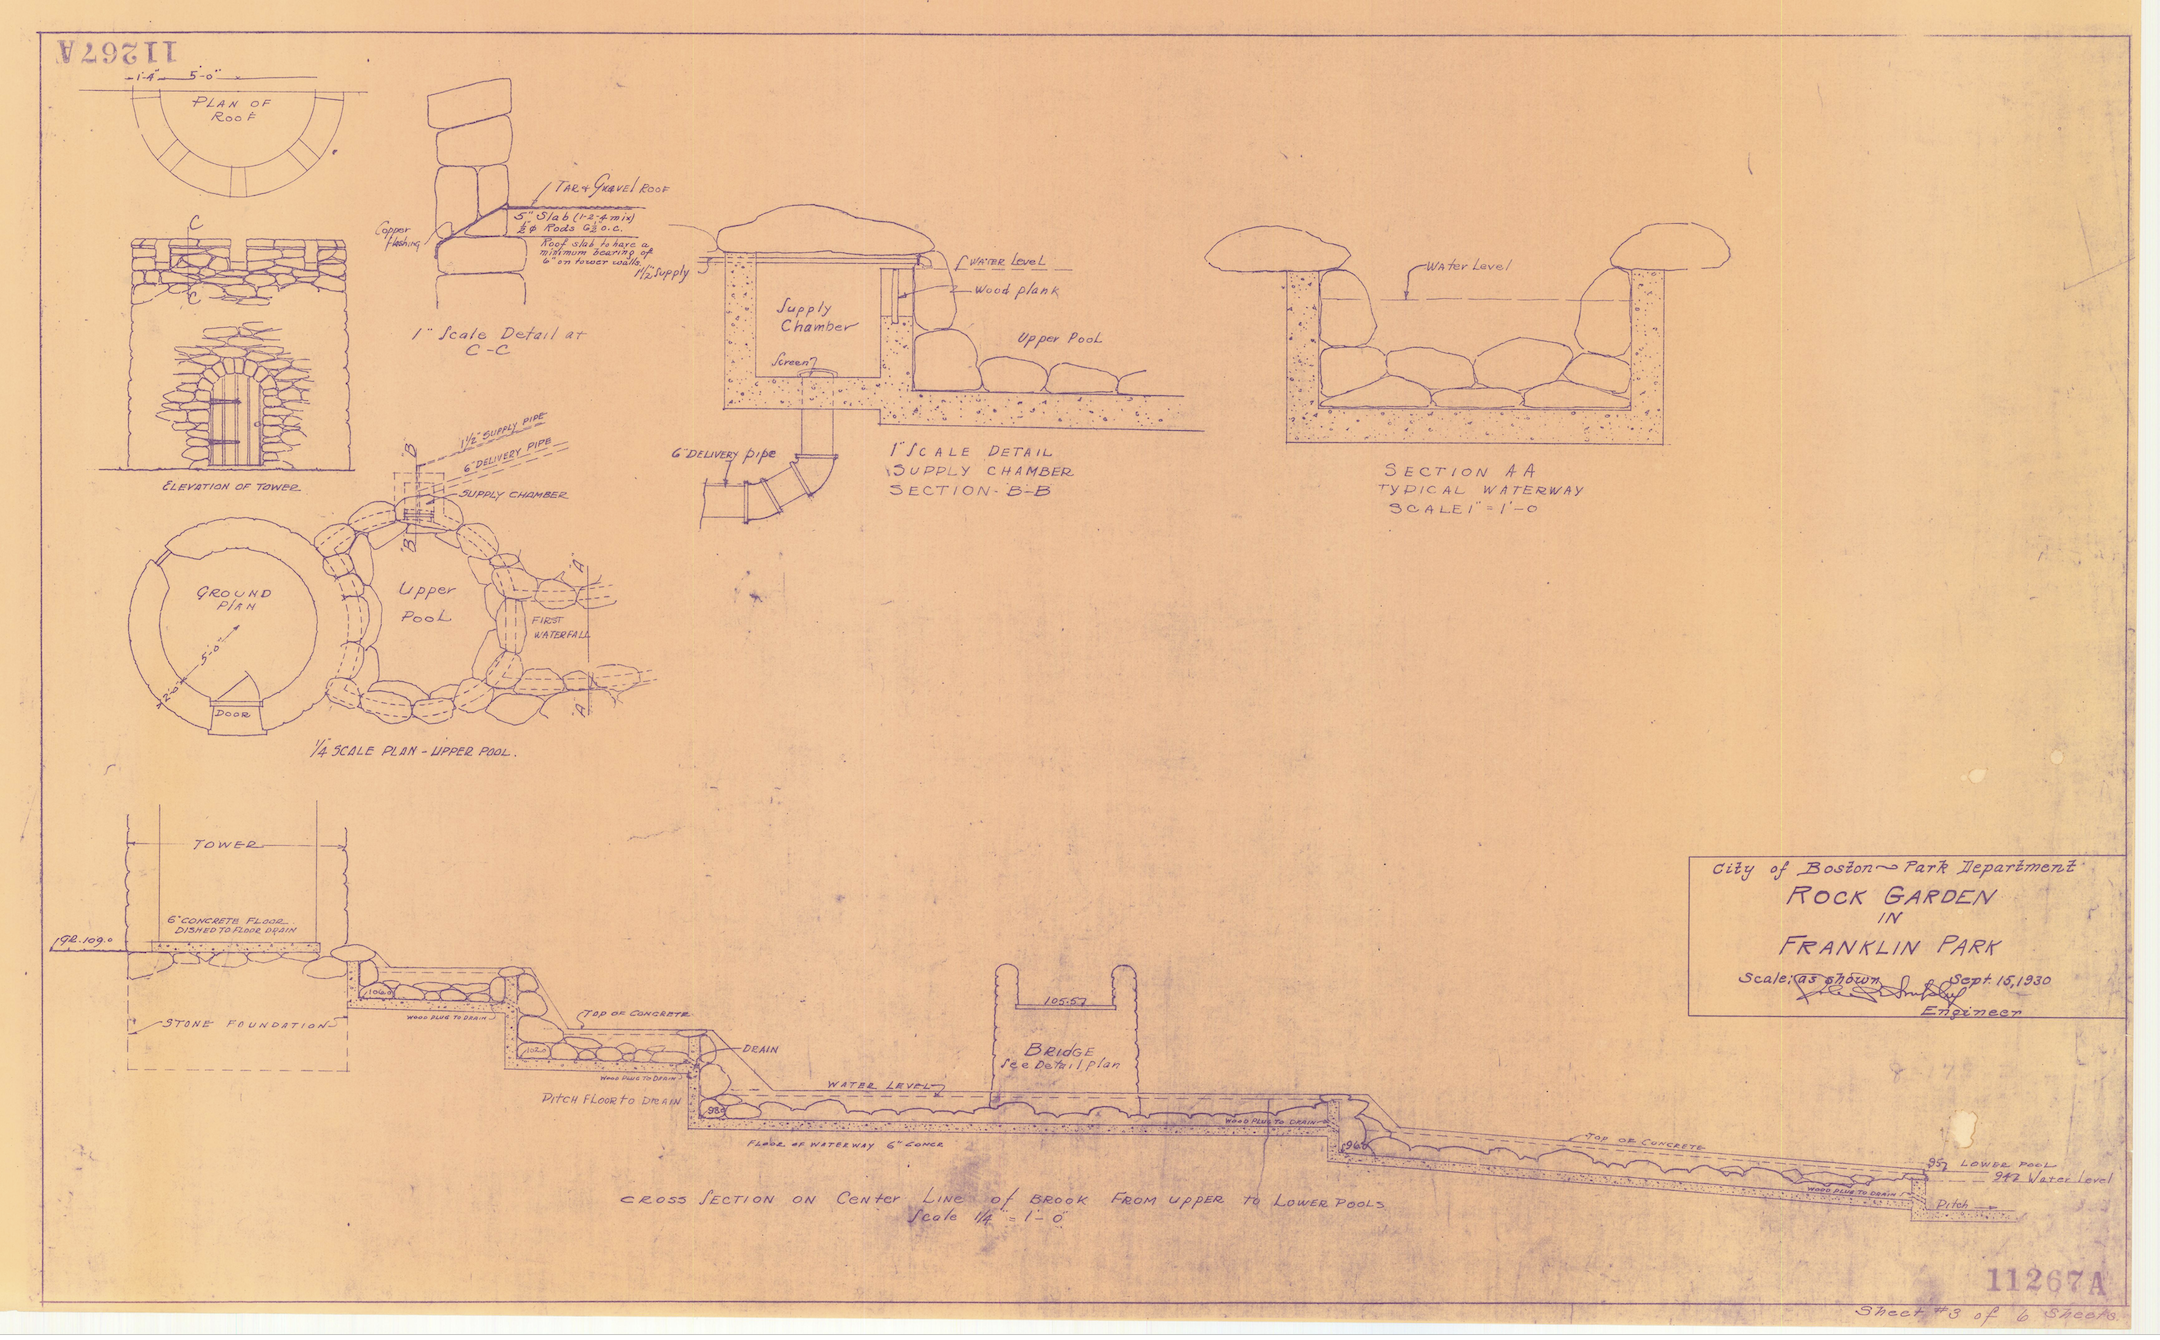 11267A
1'-4" 5'-0"
PLAN OF
ROOF
C
C
ELEVATION OF TOWER
TAR & GRAVEL ROOF
5" Slab (1-2-4 mix)
½"φ Rods 6½ o.c.
Roof slab to have a
minimum bearing of
6" on tower walls.
Copper
flashing
1" Scale Detail at
C-C
1½" Supply
WATER Level
Wood plank
Supply
Chamber
Screen
Upper Pool
6" DELIVERY pipe
1" SCALE DETAIL
SUPPLY CHAMBER
SECTION-B-B
Water Level
SECTION AA
TYPICAL WATERWAY
SCALE 1" = 1'-0
1½" SUPPLY PIPE
6" DELIVERY PIPE
SUPPLY CHAMBER
B
B
A
A
GROUND
PLAN
5'-0"
2'-0"
DOOR
Upper
Pool
FIRST
WATERFALL
1/4 SCALE PLAN - UPPER POOL.
TOWER
6" CONCRETE FLOOR
DISHED TO FLOOR DRAIN
GR. 109.0
STONE FOUNDATIONS
WOOD PLUG TO DRAIN
TOP OF CONCRETE
DRAIN
WOOD PLUG TO DRAIN
PITCH FLOOR TO DRAIN
WATER LEVEL
FLOOR OF WATERWAY 6" CONCR
105.57
BRIDGE
See Detail plan
WOOD PLUG TO DRAIN
TOP OF CONCRETE
WOOD PLUG TO DRAIN
957 LOWER POOL
947 Water Level
Pitch
CROSS SECTION ON Center Line of BROOK FROM UPPER to LOWER POOLS
Scale 1/4" = 1'-0"
City of Boston ~ Park Department
ROCK GARDEN
IN
FRANKLIN PARK
Scale: as shown Sept. 15, 1930
Engineer
11267A
Sheet #3 of 6 Sheets